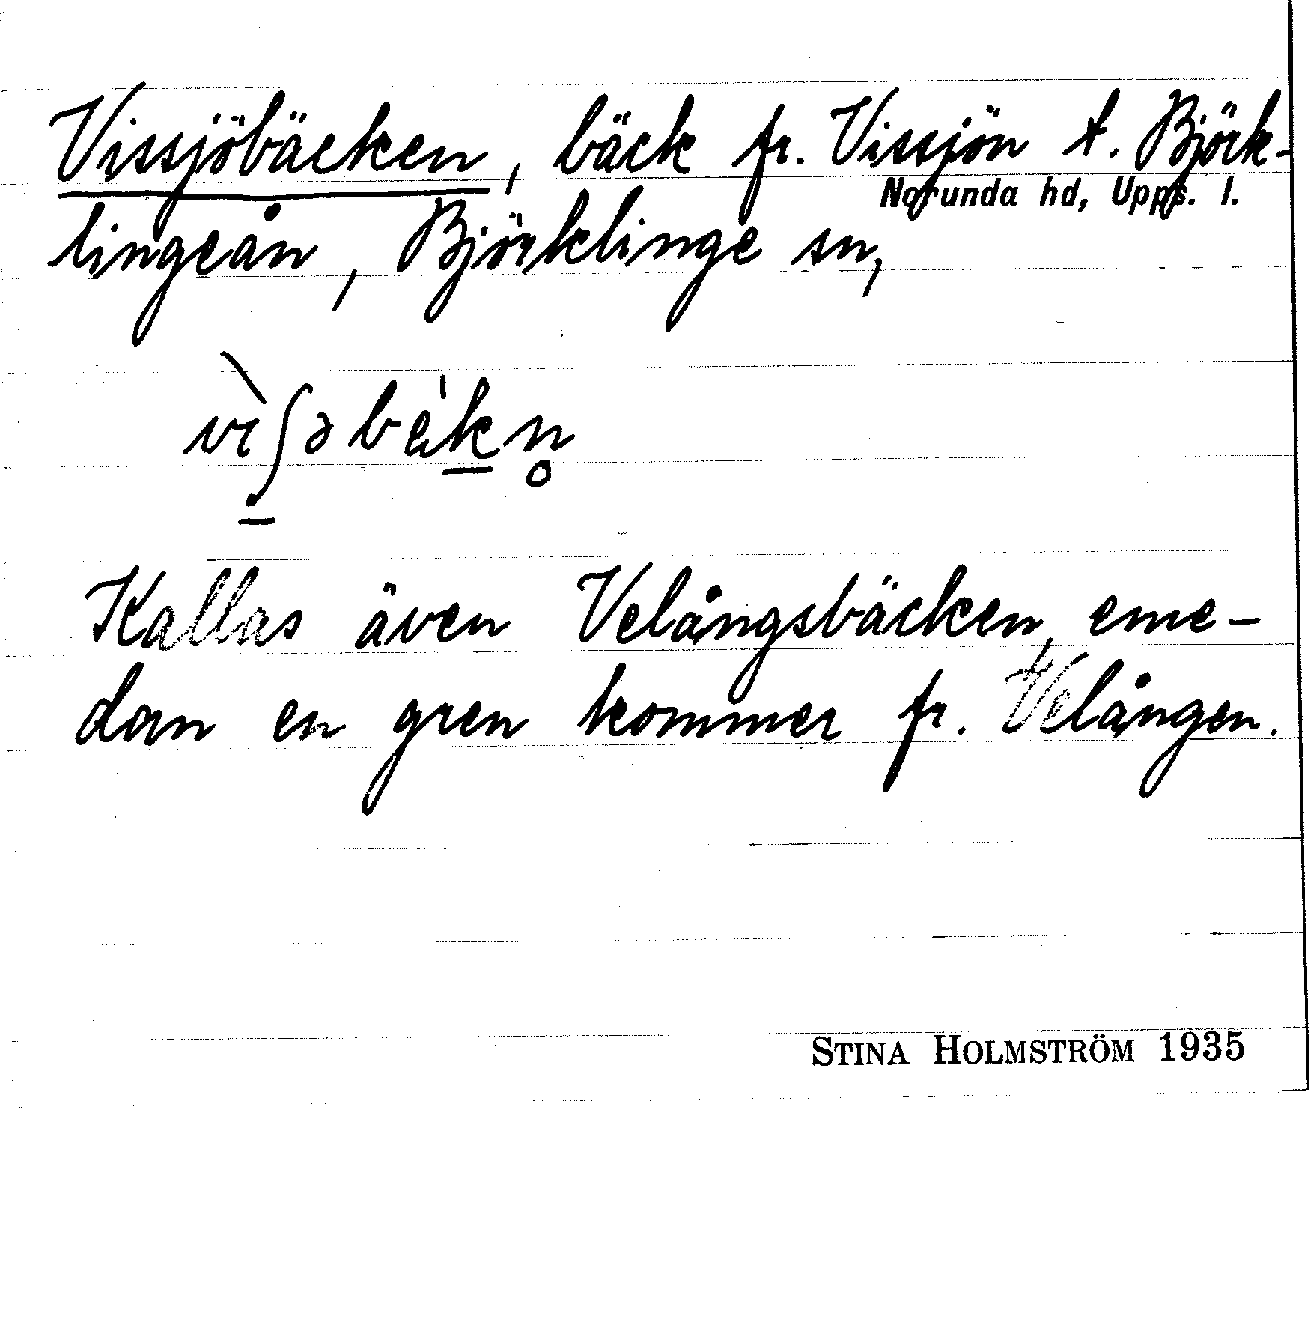 Vissjöbäcken, bäck fr. Vissjön t. Björk-
Norunda hd, Upps. l.
lingeån, Björklinge sn,
vìʃəbèkn̥
Kallas även Velångsbäcken, eme-
dan en gren kommer fr. Velången.
STINA HOLMSTRÖM 1935